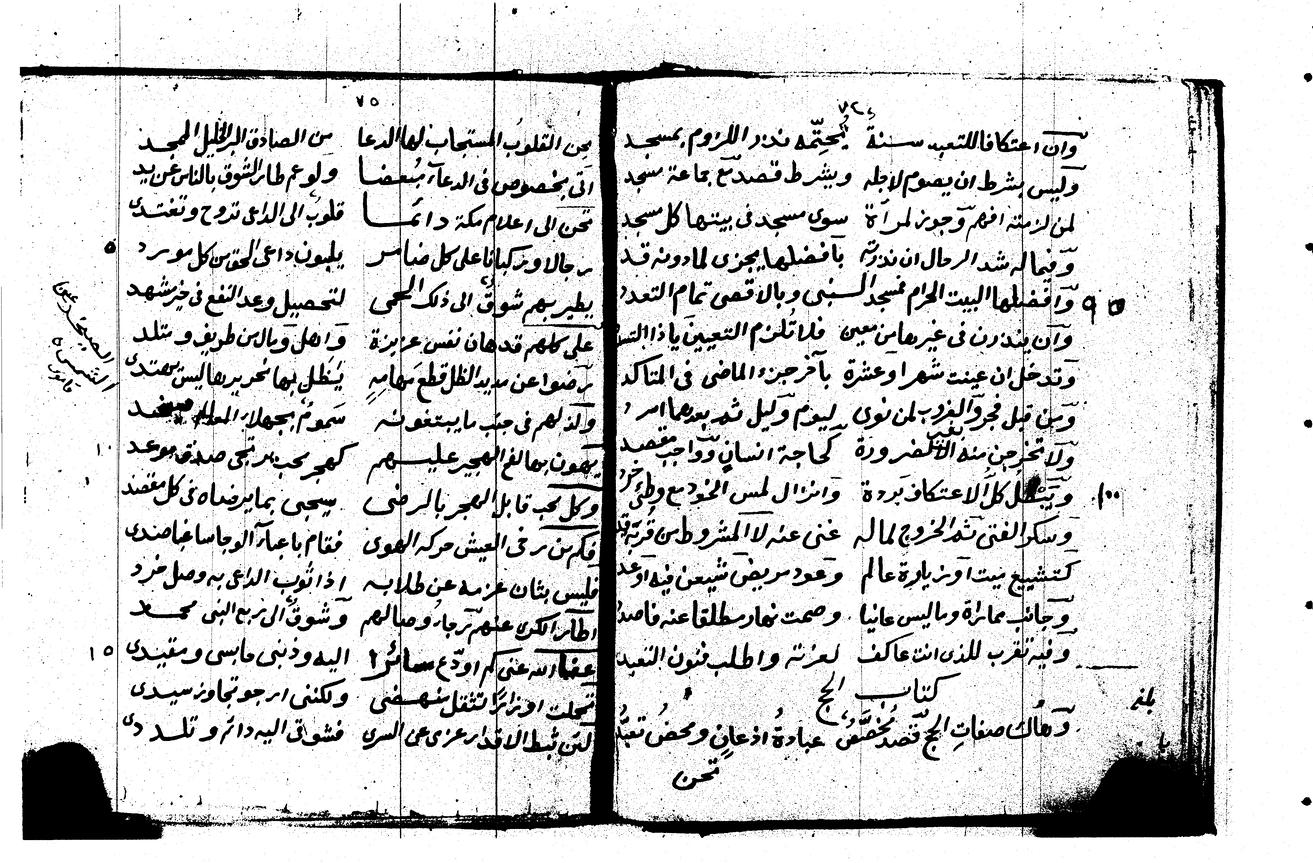 ٧٤
وان اعتكافا للتعبد سنة يحتمه نذر اللزوم بمسجد
وليس بشرط ان يصوم لاجله ويشرط قصد مع جماعة مسجد
لمن لزمته افهم وجوز لمرأة سوى مسجد في بيتها كل مسجد
وفيما له شد الرحال ان نذرته بأفضلها يجزي لما دونه قد
وافضلها البيت الحرام فمسجد النبي وبالاقصى تمام التعدد
وان ينذرن في غيرها من معين فلا تلزم التعيين ياذا
وتدخل ان عينت شهرا وعشرة بآخر جزء الماضي في المتاكد
ومن قبل فجر والغروب لمن نوى ليوم وليل ثم بعدهما
ولا تخرجن منه لغير ضرورة كحاجة انسان وواجب مقصد
ويبطل كل الاعتكاف بردة وانزال لمس الخود مع وطئ
وسكر الفتى ثم الخروج لما له غنى عنه لا المشروط من قربة قد
كتشييع ميت او زيارة عالم وعود مريض
وجانب مماراة وما ليس عانيا وصمت نهار مطلقا عنه فاصدد
وفيه تقرب للذي انت عاكف لعزته واطلب فنون التعبد
كتاب الحج
وهاك صفات الحج قصد مخصص عبادة اذعان ومحض تعبد
تحن
بلغ
٩٥
١٠٠
٧٥
تحن القلوب المستجاب لها الدعا من الصادق البر الخليل الممجد
اتى بخصوص في الدعاء مبعضا ولو عم طار الشوق بالناس عن يد
تحن الى اعلام مكة دائما قلوب الى الداعي تروح وتغتدي
رجالا وركبانا على كل ضامر يلبون داعي الحق من كل مورد
يطير بهم شوق الى ذلك الحمى لتحصيل وعد النفع في خير مشهد
على كلهم قد هان نفس عزيزة واهل ومال من طريف ومتلد
رضوا عن مديد الظل قطع مهامه يظل بها خريرها ليس يهتدي
ولذ لهم في جنب ما يبتغونه سموم بمجهلاء
يهون بها لفح الهجير عليهم كهجر محب يرتجي صدق موعد
وكل محب قابل الهجر بالرضى سيجبى بما يرضاه في كل مقصد
فكم من رخي العيش حركه الهوى فقام باعباء الوجا
فليس بثان عزمه عن طلابه اذا ثوب الداعي به وصل خرد
اطار الكرى عنهم رجاء وصالهم وشوق الى ربع النبي محمد
عفا الله عني كم اودع سائرا اليه وذنبي حابسي ومقيدي
تحملت اوزارا تثقل منهضي ولكنني ارجو تجاوز سيدي
لئن ثبط الاقدار عزمي عن السرى فشوقي اليه دائم وتلددي
٥
١٠
١٥